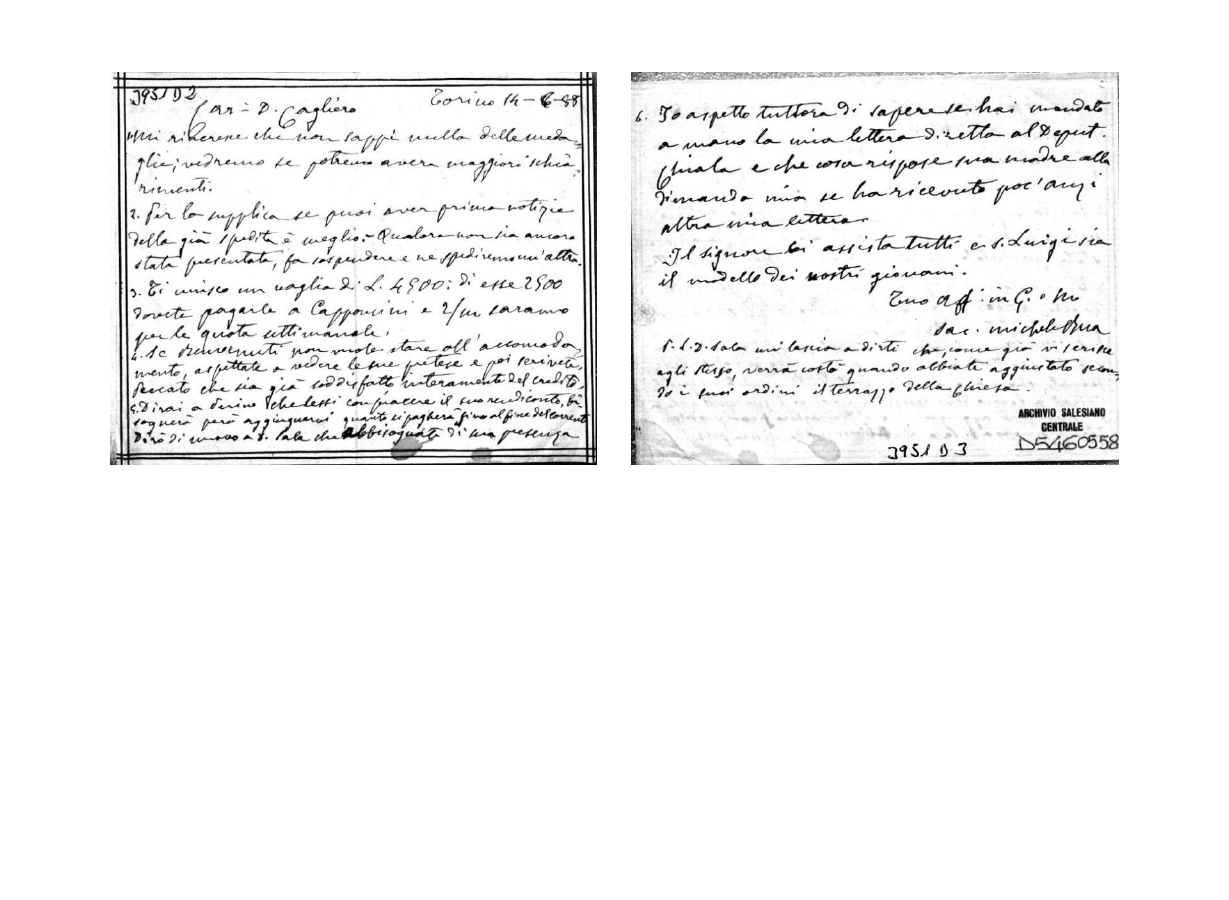 3951 D 2
Car = D. Cagliero
Torino 14-6-88
1. Mi rincresce che non sappi nulla delle meda=
glie; vedremo se potremo avere maggiori schia=
rimenti.
2. Per la supplica se puoi aver prima notizie
della già spedita è meglio. - Qualora non sia ancora
stata presentata, fa sospendere e ne spediremo un'altra.
3. Ti unisco un vaglia di L. 4500: di esse 2500
dovete pagarle a Capponcini e 2/m saranno
per le quote settimanale.
4. Se Benvenuti non vuole stare all'accomoda=
mento, aspettate a vedere le sue pretese e poi scrivete.
Peccato che sia già soddisfatto interamente del credito.
5. Dirai a che lessi con piacere il suo rendiconto, bi=
sognerà però aggiungervi quanto si pagherà fino al fine del corrente
Dirò di nuovo a D. Sala che abbisognate di sua presenza
6. Io aspetto tuttora di sapere se hai mandato
a mano la mia lettera diretta al Deput.
Chiala e che cosa rispose sua madre alla
dimanda mia se ha ricevuto poc'anzi
altra mia lettera.
Il Signore ci assista tutti e S. Luigi sia
il modello dei nostri giovani.
Tuo aff. in G. e M
Sac. Michele Rua
P.S. D. Sala mi lascia a dirti che, come già vi scrisse
egli stesso, verrà costà quando abbiate aggiustato secon=
do i suoi ordini il terrazzo della Chiesa.
ARCHIVIO SALESIANO
CENTRALE
D5460558
3951 D 3